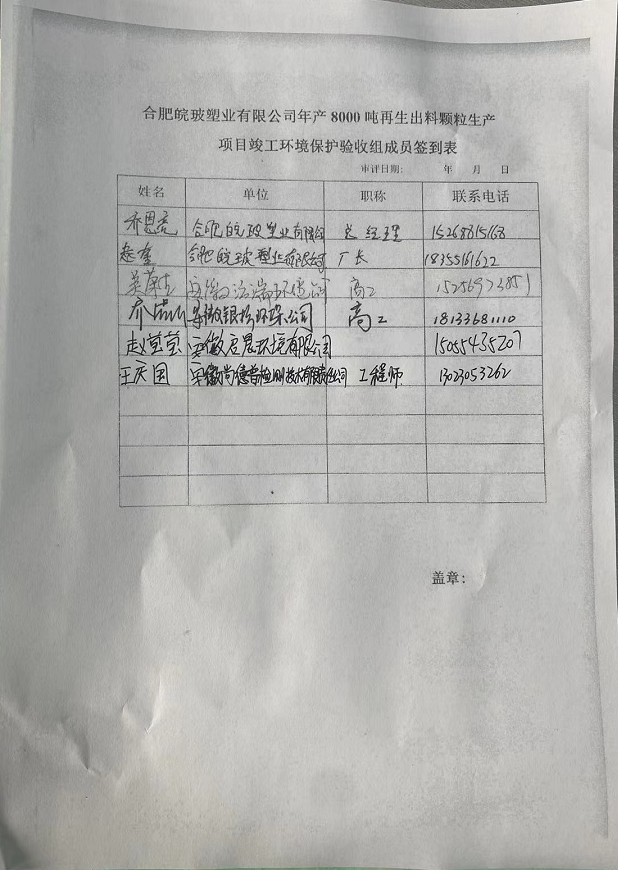 合肥皖玻塑业有限公司年产 8000 吨再生出料颗粒生产
项目竣工环境保护验收组成员签到表
审评日期： 年 月 日
姓名 单位 职称 联系电话
乔恩亮 合肥皖玻塑业有限公司 总经理 15268815168
合肥皖玻塑业有限公司 厂长 18355161622
高工 15256973851
高工 18133681110
赵莹莹 安徽启晨环境有限公司 15055435207
王庆国 安徽尚德谱检测技术有限责任公司 工程师 13023053262
盖章：